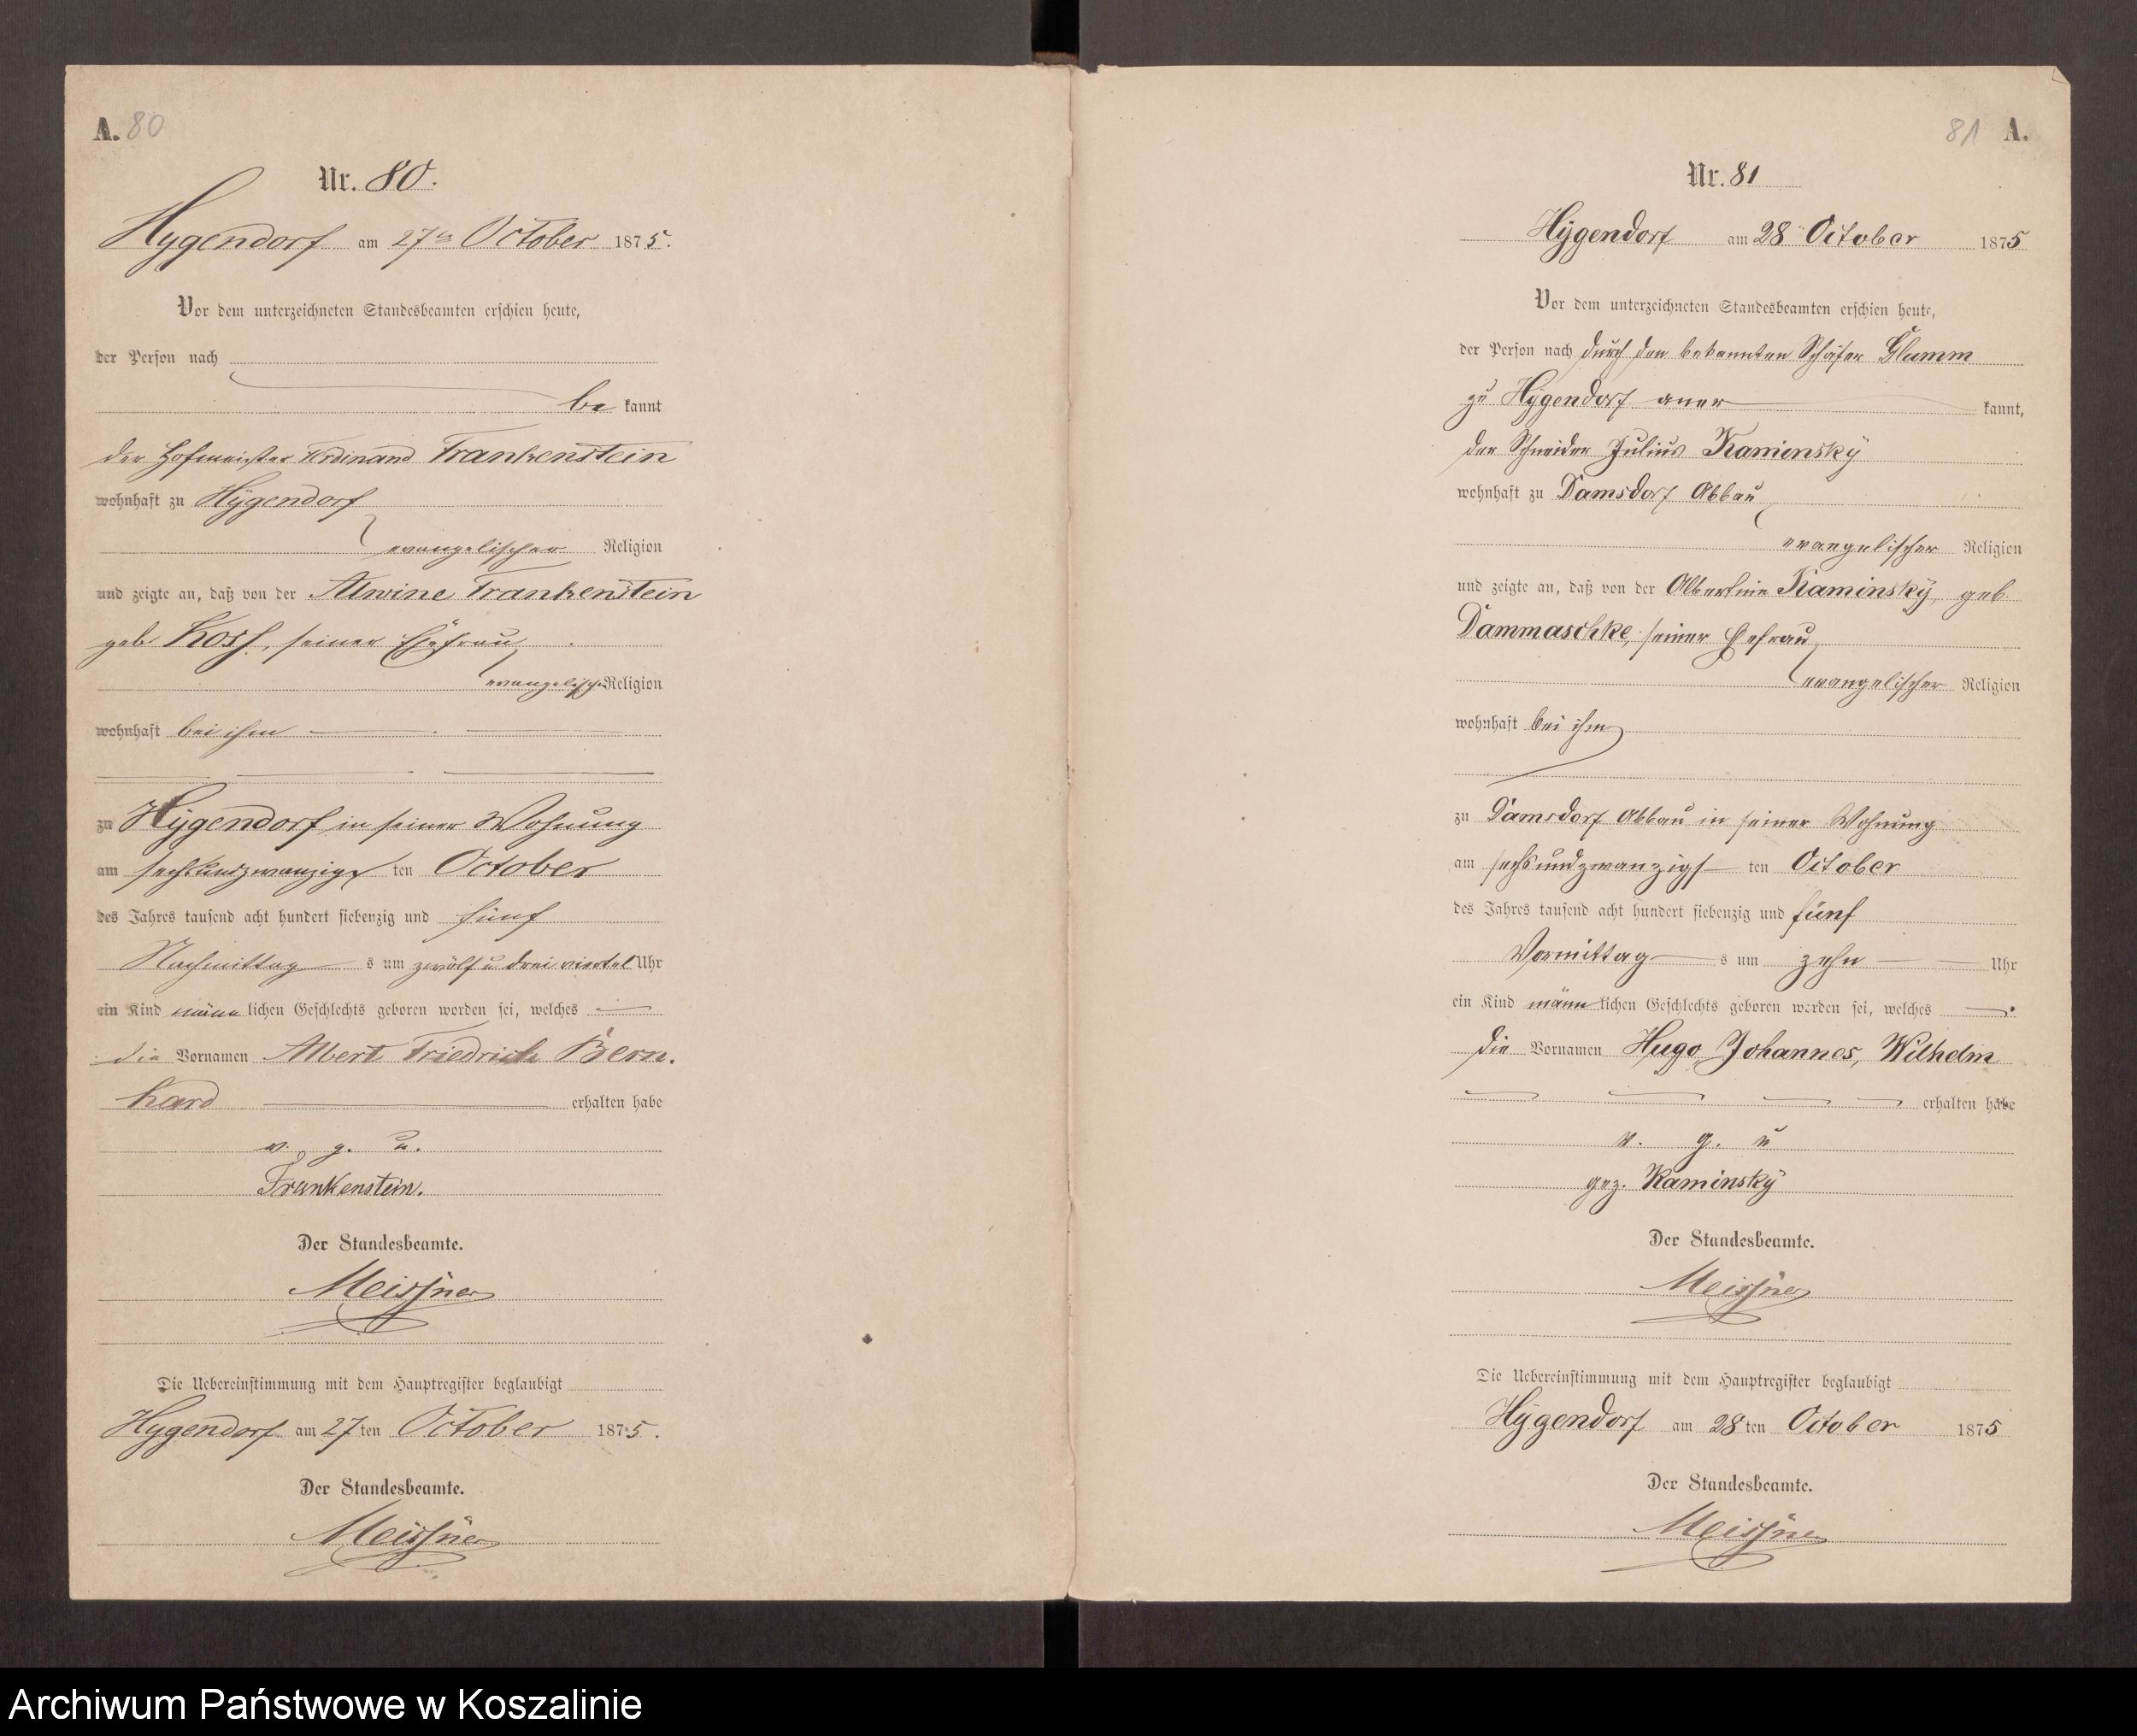 A. 80
Nr. 80.
Hygendorf am 27ten October 1875.
Vor dem unterzeichneten Standesbeamten erschien heute,
der Person nach
be kannt
der Hofmeister Ferdinand Frankenstein
wohnhaft zu Hÿgendorf
evangelischer Religion
und zeigte an, daß von der Alwine Frankenstein
geb. , seiner Ehefrau,
evangelischer Religion
wohnhaft bei ihm
zu Hÿgendorf in seiner Wohnung
am sechsundzwanzigs ten October
des Jahres tausend acht hundert siebenzig und fünf
Nachmittag s um zwölf u drei viertel Uhr
ein Kind männ lichen Geschlechts geboren worden sei, welches
die Vornamen Albert Friedrich Bern-
hard erhalten habe
v. g. u.
Frankenstein.
Der Standesbeamte.
Meissner
Die Uebereinstimmung mit dem Hauptregister beglaubigt
Hygendorf am 27 ten October 1875.
Der Standesbeamte.
Meissner
81 A.
Nr. 81
Hÿgendorf am 28 October 1875
Vor dem unterzeichneten Standesbeamten erschien heute,
der Person nach durch den bekannten Schäfer Glumm
zu Hÿgendorf aner kannt,
der Schneider Julius Kaminskÿ
wohnhaft zu Damsdorf Abbau
evangelischer Religion
und zeigte an, daß von der Albertine Kaminskÿ, geb
Dammaschke, seiner Ehefrau,
evangelischer Religion
wohnhaft bei ihm
zu Damsdorf Abbau in seiner Wohnung
am sechsundzwanzigs ten October
des Jahres tausend acht hundert siebenzig und fünf
Vormittag s um zehn Uhr
ein Kind männ lichen Geschlechts geboren worden sei, welches
die Vornamen Hugo Johannes, Wilhelm
erhalten habe
v. g. u
gez. Kaminskÿ
Der Standesbeamte.
Meissner
Die Uebereinstimmung mit dem Hauptregister beglaubigt
Hÿgendorf am 28 ten October 1875
Der Standesbeamte.
Meissner
Archiwum Państwowe w Koszalinie